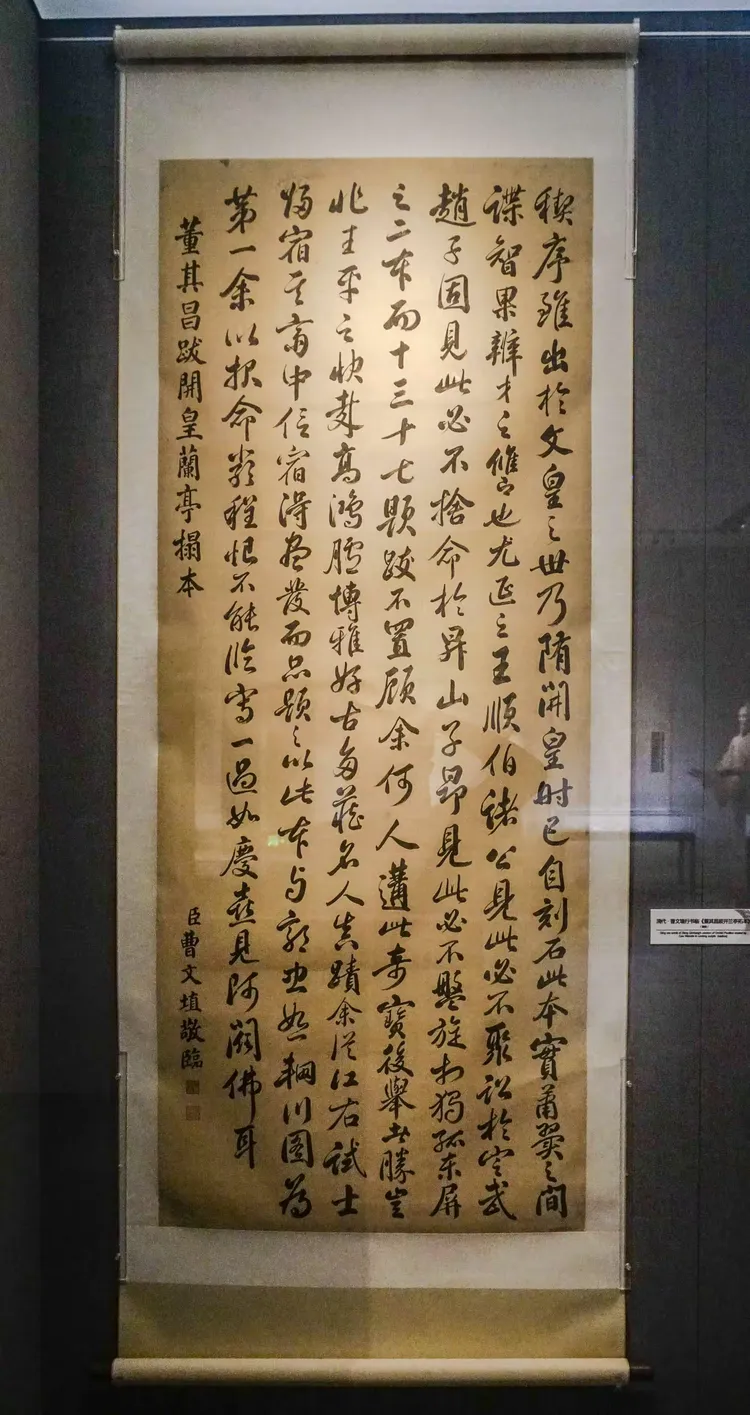 禊序雖出於文皇之世乃隋開皇時已自刻石此本實蕭翼之間
諜智果辨才之膺也尤延之王順伯諸公見此必不聚訟於定武
趙子固見此必不捨命於昇山子昂見此必不盤旋於獨孤東屏
之二本而十三十七題跋不置顧余何人遘此奇寶後舉世勝豈
非生平之快哉高鴻臚博雅好古多藏名人真蹟余從江右試士
歸宿其齋中信宿得盡發而品題之以此本与郭忠恕輞川圖為
第一余以報命嚴程恨不能臨寫一過如慶喜見阿閦佛耳
董其昌跋開皇蘭亭搨本
臣曹文埴敬臨
清代·曹文埴行书轴《董其昌跋开兰亭拓本》